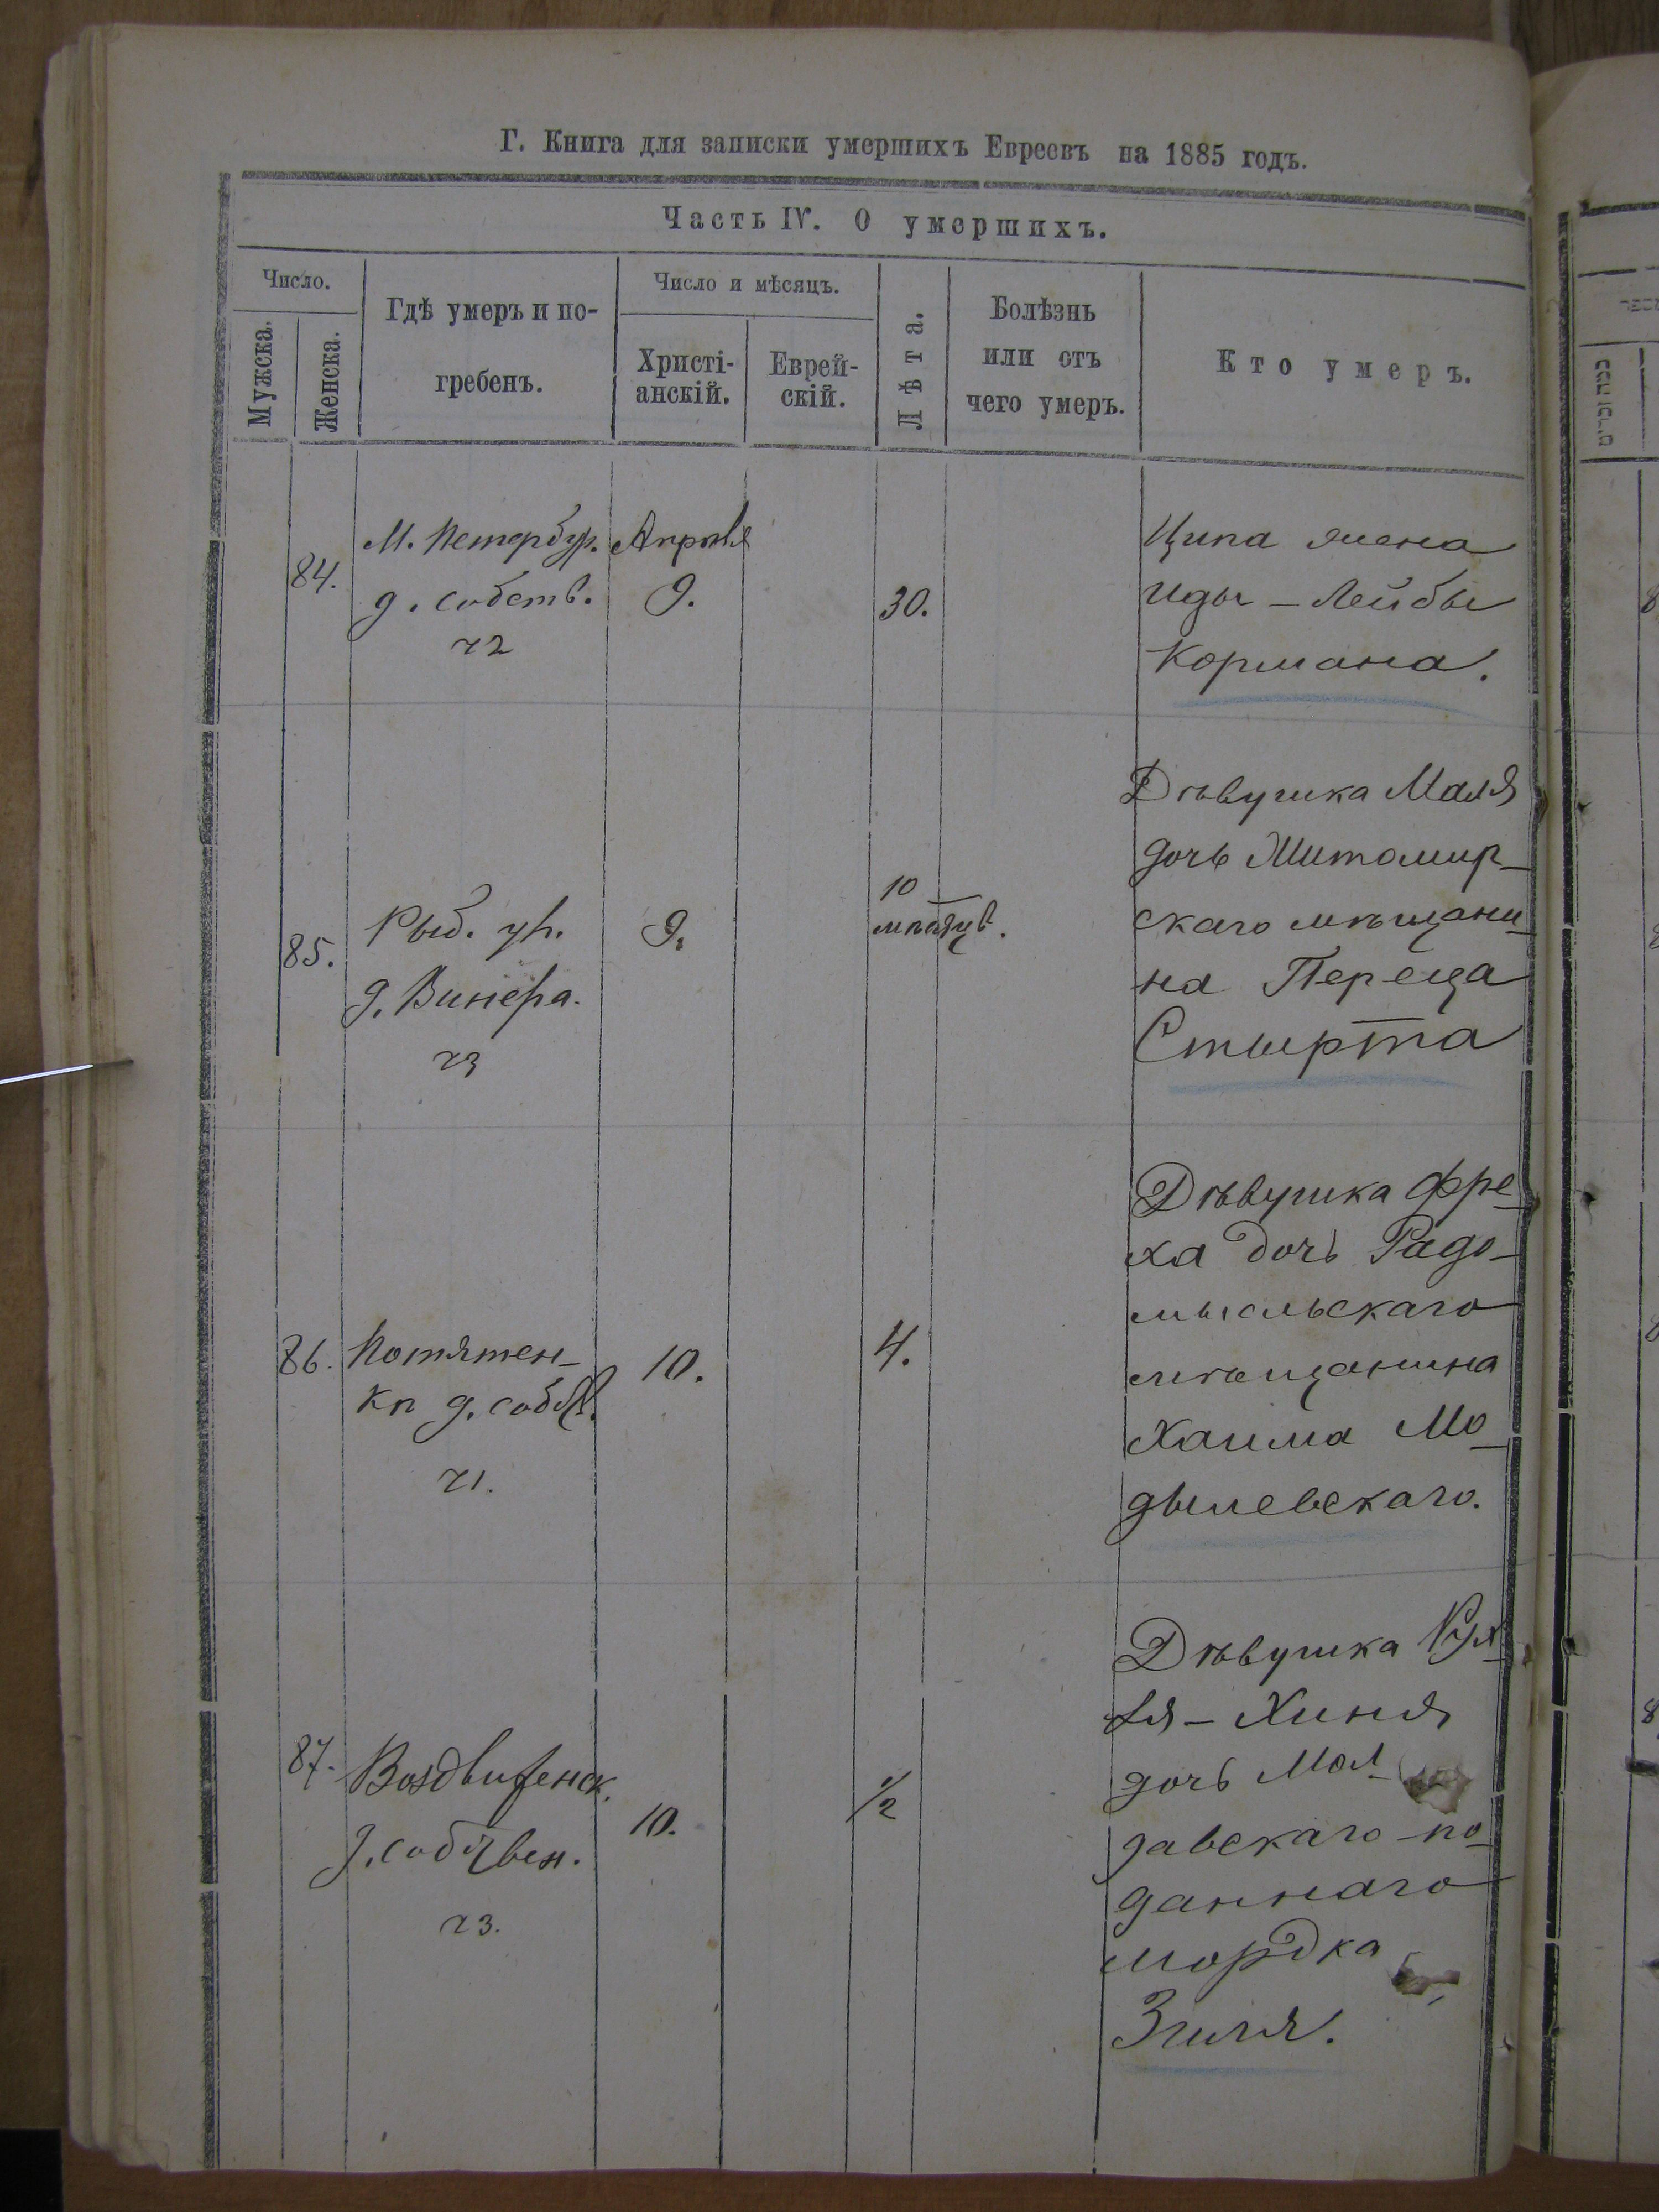 Г. Книга для записки умершихъ Евреевъ на 1885 годъ.
Часть IV. О умершихъ.
Число.
Мужска.
Женска.
Гдѣ умеръ и по-
гребенъ.
Число и мѣсяцъ.
Христі-
анскій.
Еврей-
скій.
Лѣта.
Болѣзнь
или отъ
чего умеръ.
Кто умеръ.
84.
М. Петербур.
д. собств.
ч2
Апрѣля
9.
30.
Ципа жена
Иды - Лейбы
Кормана.
85.
Рыб. ул.
д. Винера.
ч3
9.
10
мѣсяцѣв.
Дѣвушка Маля
дочь Житомир-
скаго мѣщани-
на Переца
Стырта
86.
д. собств.
ч1.
10.
4.
Дѣвушка Фре-
ха дочь Радо-
мысльскаго
мѣщанина
Хаима Мо-
дылевскаго.
87.
Воздвиженск.
д. собствен.
ч3.
10.
1/2
Дѣвушка
Хиня
дочь Мол-
давскаго по-
даннаго
Мордка